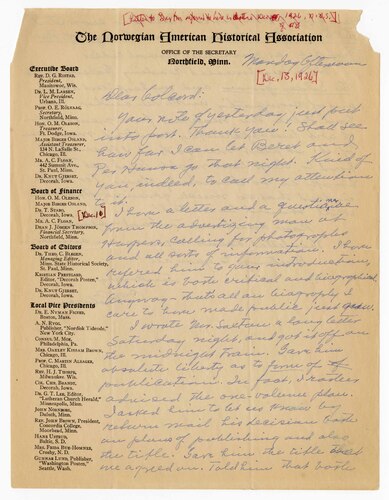 The Norwegian American Historical Association
OFFICE OF THE SECRETARY
Northfield, Minn.
Monday Afternoon
[Dec. 13, 1926]
Executive Board
REV. D. G. RISTAD,
President,
Manitowoc, Wis.
DR. L. M. LARSON,
Vice President,
Urbana, Ill.
PROF. O. E. RÖLVAAG,
Secretary,
Northfield, Minn.
HON. O. M. OLESON,
Treasurer,
Ft. Dodge, Iowa.
MAJOR BIRGER OSLAND,
Assistant Treasurer,
Chicago, Ill.
MR. A. C. FLOAN,
St. Paul, Minn.
DR. KNUT GJERSET,
Decorah, Iowa.
Board of Finance
HON. O. M. OLESON,
MAJOR BIRGER OSLAND,
DR. T. STABO,
Decorah, Iowa.
MR. A. C. FLOAN,
DEAN J. JÖRGEN THOMPSON,
Financial Secretary,
Northfield, Minn.
Board of Editors
DR. THEO. C. BLEGEN,
Managing Editor,
Minn. State Historical Society,
St. Paul, Minn.
KRISTIAN PRESTGARD,
Editor, "Decorah Posten,"
Decorah, Iowa.
DR. KNUT GJERSET,
Decorah, Iowa.
Local Vice Presidents
Boston, Mass.
A. N. RYGG,
Publisher, "Nordisk Tidende,"
New York City.
CONSUL M. MOE,
Philadelphia, Pa.
Chicago, Ill.
Chicago, Ill.
REV. H. J. THORPE,
Milwaukee, Wis.
Decorah, Iowa.
DR. G. T. LEE, Editor,
"Lutheran Church Herald,"
Minneapolis, Minn.
JOHN NORNBORG,
Duluth, Minn.
REV. JOHN BROWN, President,
Concordia College,
Moorhead, Minn.
HANS USTRUD,
Baltic, S. D.
Crosby, N. D.
GUNNAR LUND, Publisher,
"Washington Posten,"
Seattle, Wash.
Dear Colcord:
Your note of yesterday just put
into post. Thank you! Shall see
how far I can let Beret and
Per Hansa go that night. Kind of
you, indeed, to call my attention
to it.
[Dec. 10]
I have a letter and a questionnaire
from the advertising man at
Harpers, calling for photographs
and all sorts of information. I have
referred him to your introduction,
which is both critical and biographical
anyway that's all an biography I
care to have made public just now.
I wrote Mr. Saxton a long letter
Saturday night, and got it off on
the midnight train. Gave him
absolute liberty as to form of
publication. In fact, I rather
advised the one-volume plan.
I asked him to let us know by
return mail his decision both
on plans of publishing and also
the title. Gave him the title that
we agreed on. Told him that both